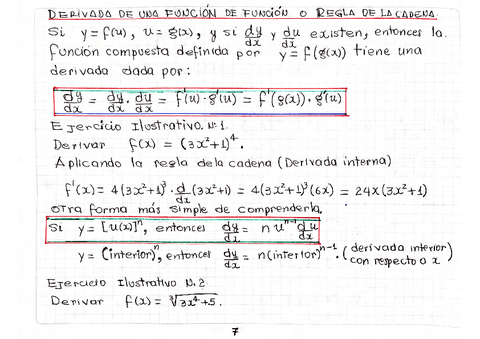 DERIVADA DE UNA FUNCIÓN DE FUNCIÓN O REGLA DE LA CADENA.
Si y=f(u), u=g(x), y si dy/dx y du/dx existen, entonces la
función compuesta definida por y=f(g(x)) tiene una
derivada dada por:
dy/dx = dy/dx · du/dx = f'(u)·g'(u) = f'(g(x))·g'(u)
Ejercicio Ilustrativo. Nº1.
Derivar f(x) = (3x²+1)⁴.
Aplicando la regla de la cadena (Derivada interna)
f'(x) = 4(3x²+1)³·d/dx(3x²+1) = 4(3x²+1)³(6x) = 24x(3x²+1)
otra forma más simple de comprenderla.
Si y=[u(x)]ⁿ, entonces dy/dx = n uⁿ⁻¹ du/dx
y=(interior)ⁿ, entonces dy/dx = n(interior)ⁿ⁻¹·(derivada interior con respecto a x)
Ejercicio Ilustrativo Nº.2
Derivar f(x) = ³√3x⁴+5.
7